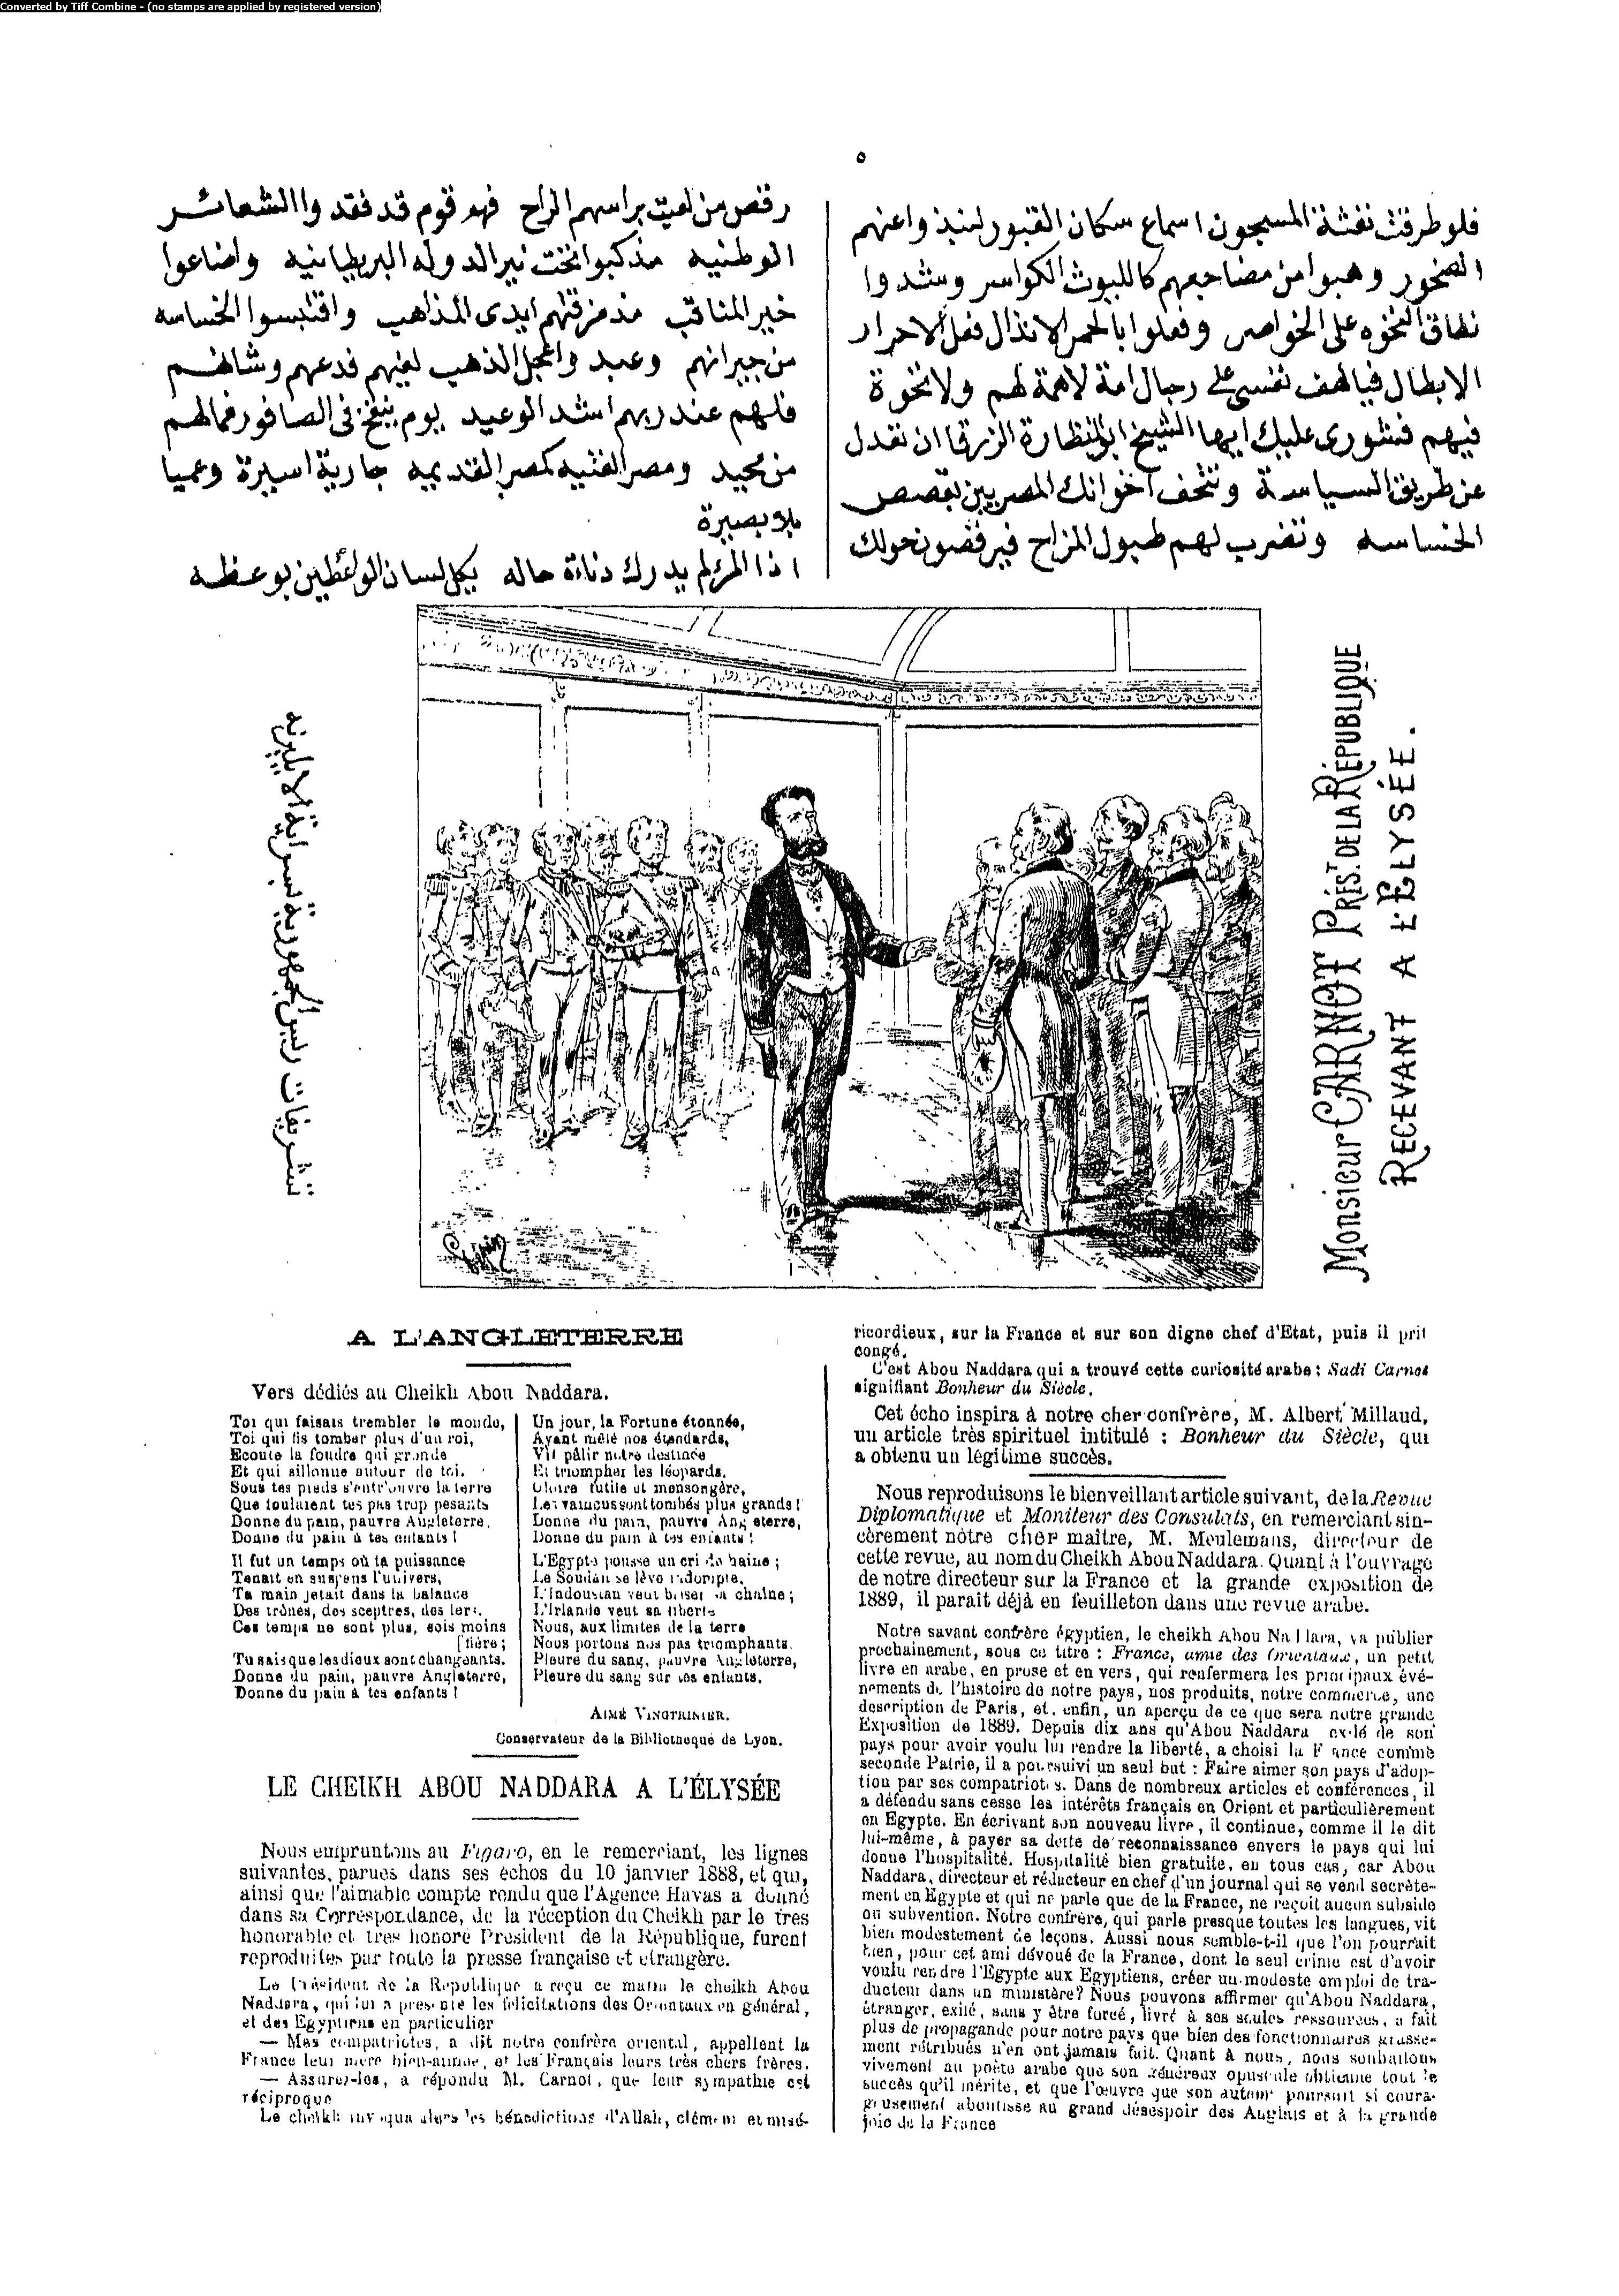 Converted by Tiff Combine - (no stamps are applied by registered version)
٥
فلو طرقت نفثة المسجون اسماع سكان القبور لنبذوا عنهم
الصخور وهبوا من مضاجعهم كالليوث الكواسر وشدوا
نطاق النخوه على الخواصر وفعلوا بالحمر الانذال فعل الاحرار
الابطال فيالهف نفسى على رجال امة لا همة لهم ولا نخوة
فيهم فشورى عليك ايها الشيخ ابو النظارة الزرقا ان تعدل
عن طريق السياسة وتتحف اخوانك المصريين بقصص
الخساسه وتضرب لهم طبول المزاح فيرقصون حولك
رقص من لعبت براسهم الراح فهو قوم قد فقدوا الشعائر
الوطنيه مذ كبوا تحت نير الدوله البريطانيه واضاعوا
خير المناقب مذ مزقتهم ايدى المذاهب واقتبسوا الخساسه
من جيرانهم وعبدوا عجل الذهب لغيهم فدعهم وشانهم
فلهم عند ربهم اشد الوعيد يوم ينفخ فى الصافور فمالهم
من محيد ومصر الفتيه كمصر القديمه جارية اسيرة وعميا
بلا بصيرة
اذا المرء لم يدرك دناءة حاله بكل لسان الواعظين بوعظه
تشريفات رئيس الجمهورية بسراية الاليزيه
Monsieur CARNOT PRÉST. DE LA RÉPUBLIQUE
RECEVANT A L'ELYSÉE.
A L'ANGLETERRE
Vers dédiés au Cheikh Abou Naddara.
Toi qui faisais trembler le monde,
Toi qui fis tomber plus d'un roi,
Ecoute la foudre qui gronde
Et qui sillonne autour de toi.
Sous tes pieds s'entr'ouvre la terre
Que foulaient tes pas trop pesants
Donne du pain, pauvre Angleterre,
Donne du pain à tes enfants !
Il fut un temps où ta puissance
Tenait en suspens l'univers,
Ta main jetait dans la balance
Des trônes, des sceptres, des fers.
Ces temps ne sont plus, sois moins
[fière ;
Tu sais que les dieux sont changeants.
Donne du pain, pauvre Angleterre,
Donne du pain à tes enfants !
Un jour, la Fortune étonnée,
Ayant mêlé nos étendards,
Vit pâlir notre destinée
Et triompher les léopards.
Gloire futile et mensongère,
Les vaincus sont tombés plus grands !
Donne du pain, pauvre Angleterre,
Donne du pain à tes enfants !
L'Egypte pousse un cri de haine ;
Le Soudan se lève indompté,
L'Indoustan veut briser sa chaîne ;
L'Irlande veut sa liberté
Nous, aux limites de la terre
Nous portons nos pas triomphants.
Pleure du sang, pauvre Angleterre,
Pleure du sang sur tes enfants.
AIMÉ VINGTRINIER.
Conservateur de la Bibliothèque de Lyon.
LE CHEIKH ABOU NADDARA A L'ÉLYSÉE
Nous empruntons au Figaro, en le remerciant, les lignes
suivantes, parues dans ses échos du 10 janvier 1888, et qui,
ainsi que l'aimable compte rendu que l'Agence Havas a donné
dans sa Correspondance, de la réception du Cheikh par le très
honorable et très honoré Président de la République, furent
reproduites par toute la presse française et étrangère.
Le Président de la République a reçu ce matin le cheikh Abou
Naddara, qui lui a présenté les félicitations des Orientaux en général,
et des Egyptiens en particulier
— Mes compatriotes, a dit notre confrère oriental, appellent la
France leur mère bien-aimée, et les Français leurs très chers frères.
— Assurez-les, a répondu M. Carnot, que leur sympathie est
réciproque
Le cheikh invoqua alors les bénédictions d'Allah, clément et misé-
ricordieux, sur la France et sur son digne chef d'Etat, puis il prit
congé.
C'est Abou Naddara qui a trouvé cette curiosité arabe : Sadi Carnot
signifiant Bonheur du Siècle.
Cet écho inspira à notre cher confrère, M. Albert Millaud,
un article très spirituel intitulé : Bonheur du Siècle, qui
a obtenu un légitime succès.
Nous reproduisons le bienveillant article suivant, de la Revue
Diplomatique et Moniteur des Consulats, en remerciant sin-
cèrement notre cher maître, M. Meulemans, directeur de
cette revue, au nom du Cheikh Abou Naddara. Quant à l'ouvrage
de notre directeur sur la France et la grande exposition de
1889, il parait déjà en feuilleton dans une revue arabe.
Notre savant confrère égyptien, le cheikh Abou Naddara, va publier
prochainement, sous ce titre : France, amie des Orientaux, un petit
livre en arabe, en prose et en vers, qui renfermera les principaux évé-
nements de l'histoire de notre pays, nos produits, notre commerce, une
description de Paris, et, enfin, un aperçu de ce que sera notre grande
Exposition de 1889. Depuis dix ans qu'Abou Naddara exilé de son
pays pour avoir voulu lui rendre la liberté, a choisi la France comme
seconde Patrie, il a poursuivi un seul but : Faire aimer son pays d'adop-
tion par ses compatriotes. Dans de nombreux articles et conférences, il
a défendu sans cesse les intérêts français en Orient et particulièrement
en Egypte. En écrivant son nouveau livre, il continue, comme il le dit
lui-même, à payer sa dette de reconnaissance envers le pays qui lui
donne l'hospitalité. Hospitalité bien gratuite, en tous cas, car Abou
Naddara, directeur et rédacteur en chef d'un journal qui se vend secrète-
ment en Egypte et qui ne parle que de la France, ne reçoit aucun subside
ou subvention. Notre confrère, qui parle presque toutes les langues, vit
bien modestement de leçons. Aussi nous semble-t-il que l'on pourrait
bien, pour cet ami dévoué de la France, dont le seul crime est d'avoir
voulu rendre l'Egypte aux Egyptiens, créer un modeste emploi de tra-
ducteur dans un ministère? Nous pouvons affirmer qu'Abou Naddara,
étranger, exilé, sans y être forcé, livré à ses seules ressources, a fait
plus de propagande pour notre pays que bien des fonctionnaires grasse-
ment rétribués n'en ont jamais fait. Quant à nous, nous souhaitons
vivement au poète arabe que son généreux opuscule obtienne tout le
succès qu'il mérite, et que l'œuvre que son auteur poursuit si coura-
geusement aboutisse au grand désespoir des Anglais et à la grande
joie de la France